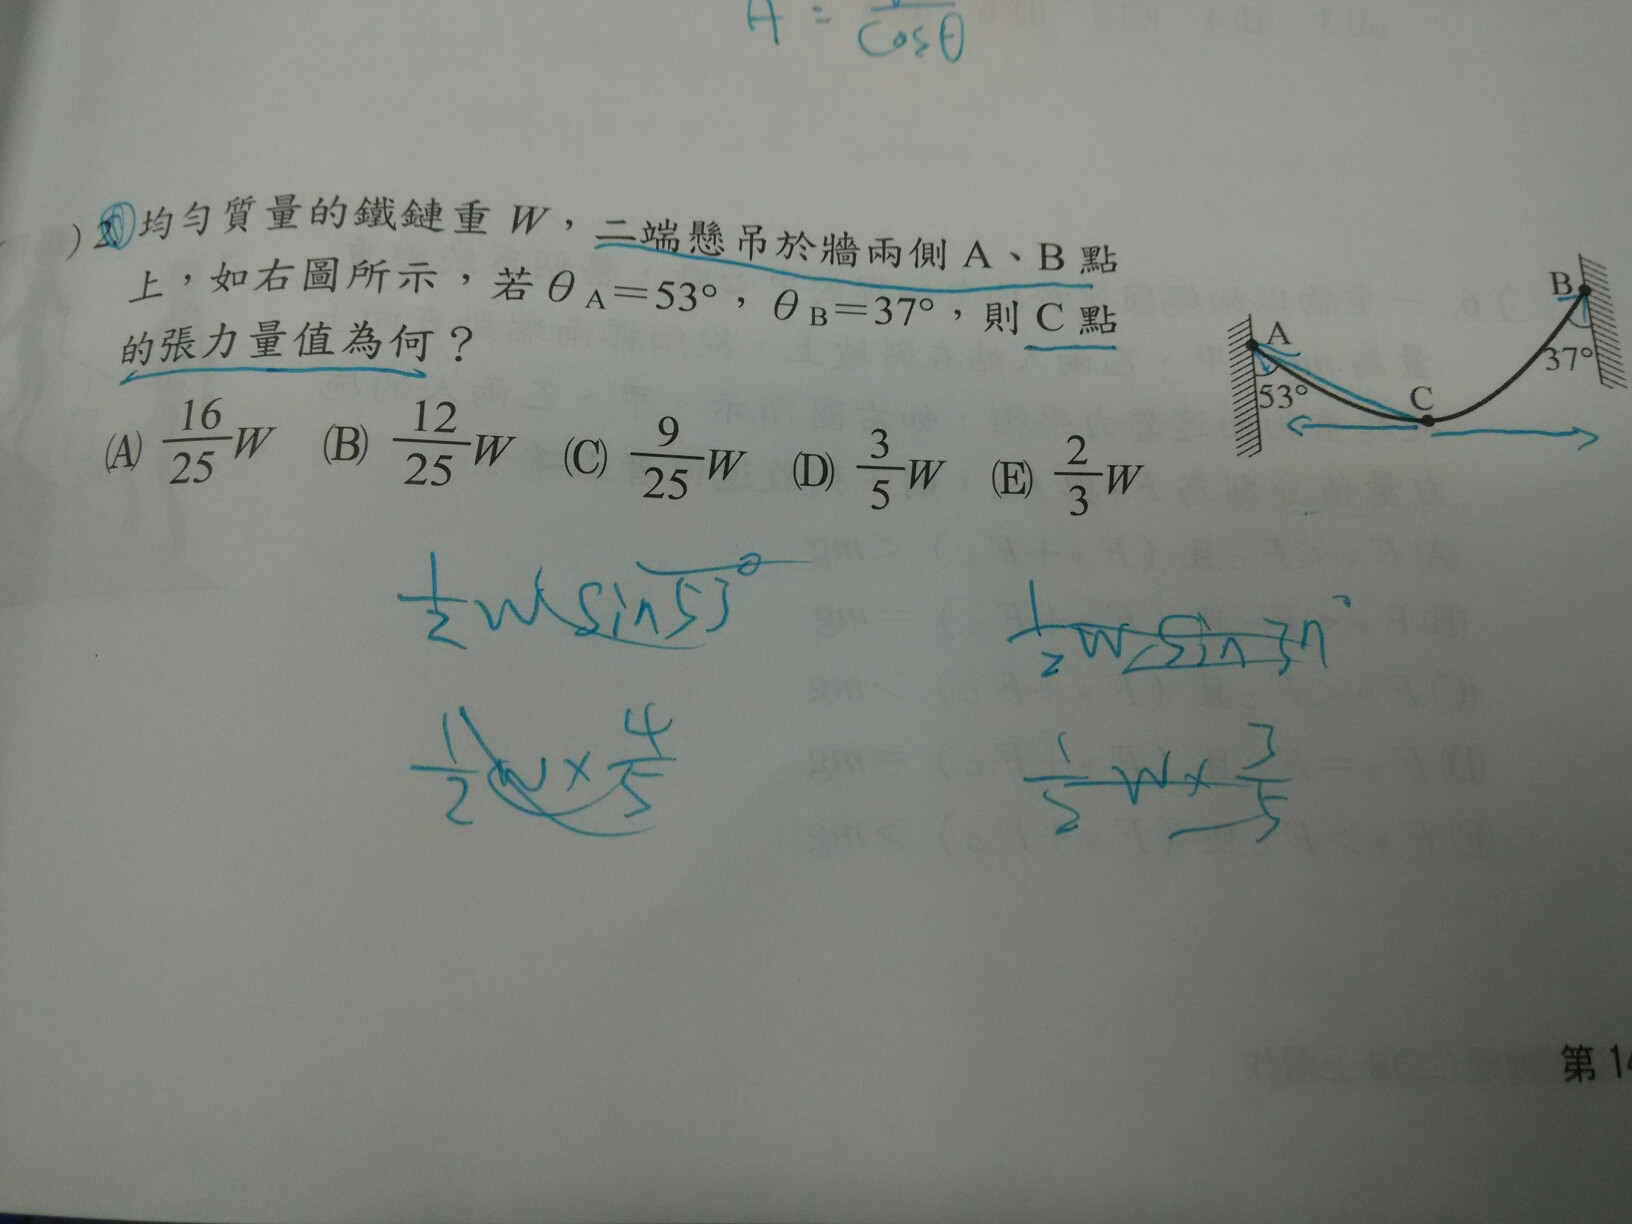 A = cosθ
) 2. 均勻質量的鐵鏈重 W，二端懸吊於牆兩側 A、B 點
上，如右圖所示，若 θA＝53°，θB＝37°，則 C 點
的張力量值為何？
(A) 16/25 W (B) 12/25 W (C) 9/25 W (D) 3/5 W (E) 2/3 W
A
B
53°
C
37°
1/2 W sin53°
1/2 W sin37°
1/2 W × 4/5
1/2 W × 3/5
第 14